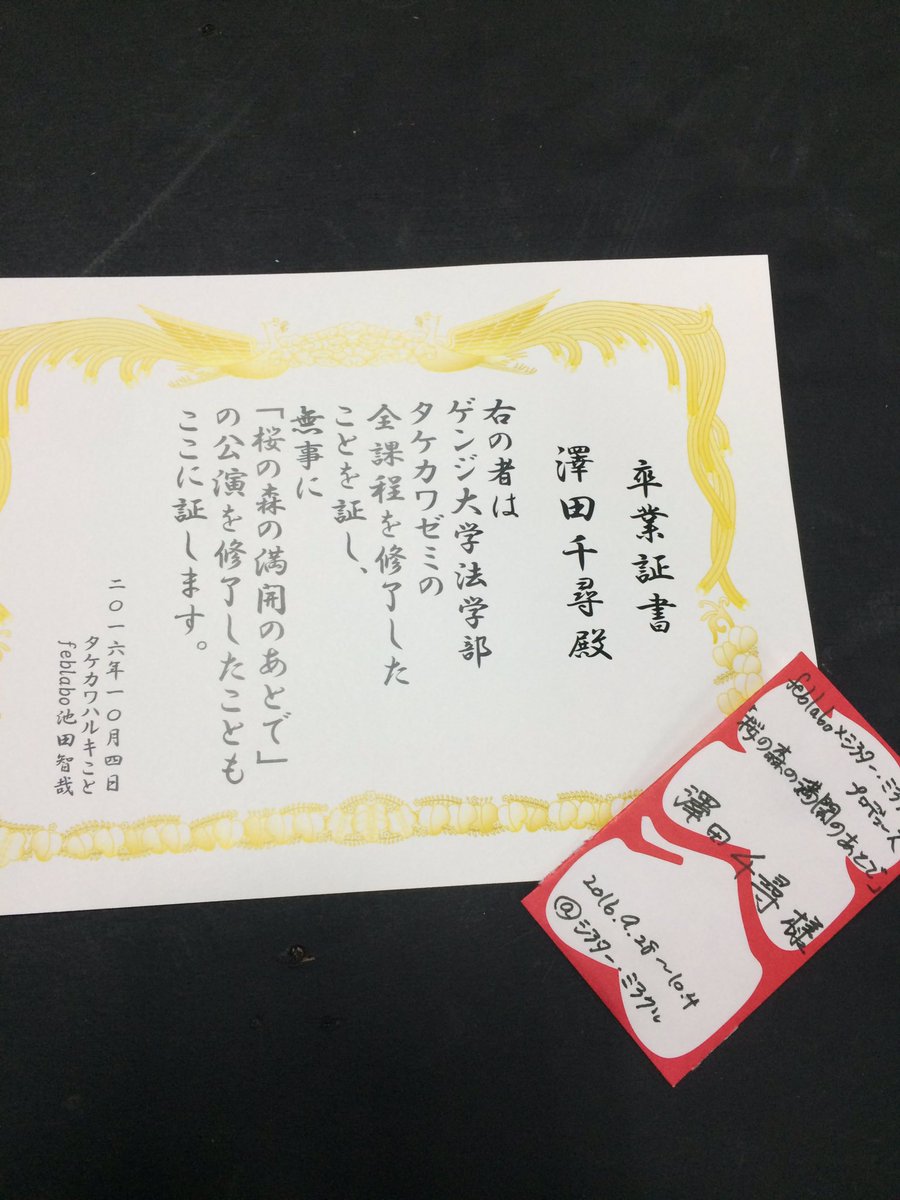 卒業証書
澤田千尋殿
右の者は
ゲンジ大学法学部
タケカワゼミの
全課程を修了した
ことを証し、
無事に
「桜の森の満開のあとで」
の公演を修了したことも
ここに証します。
二〇一六年一〇月四日
タケカワハルキこと
feblabo池田智哉
feblabo×シアター・ミラク
プロデュース
「桜の森の満開のあとで」
澤田千尋様
2016.9.28～10.4
@シアター・ミラクル